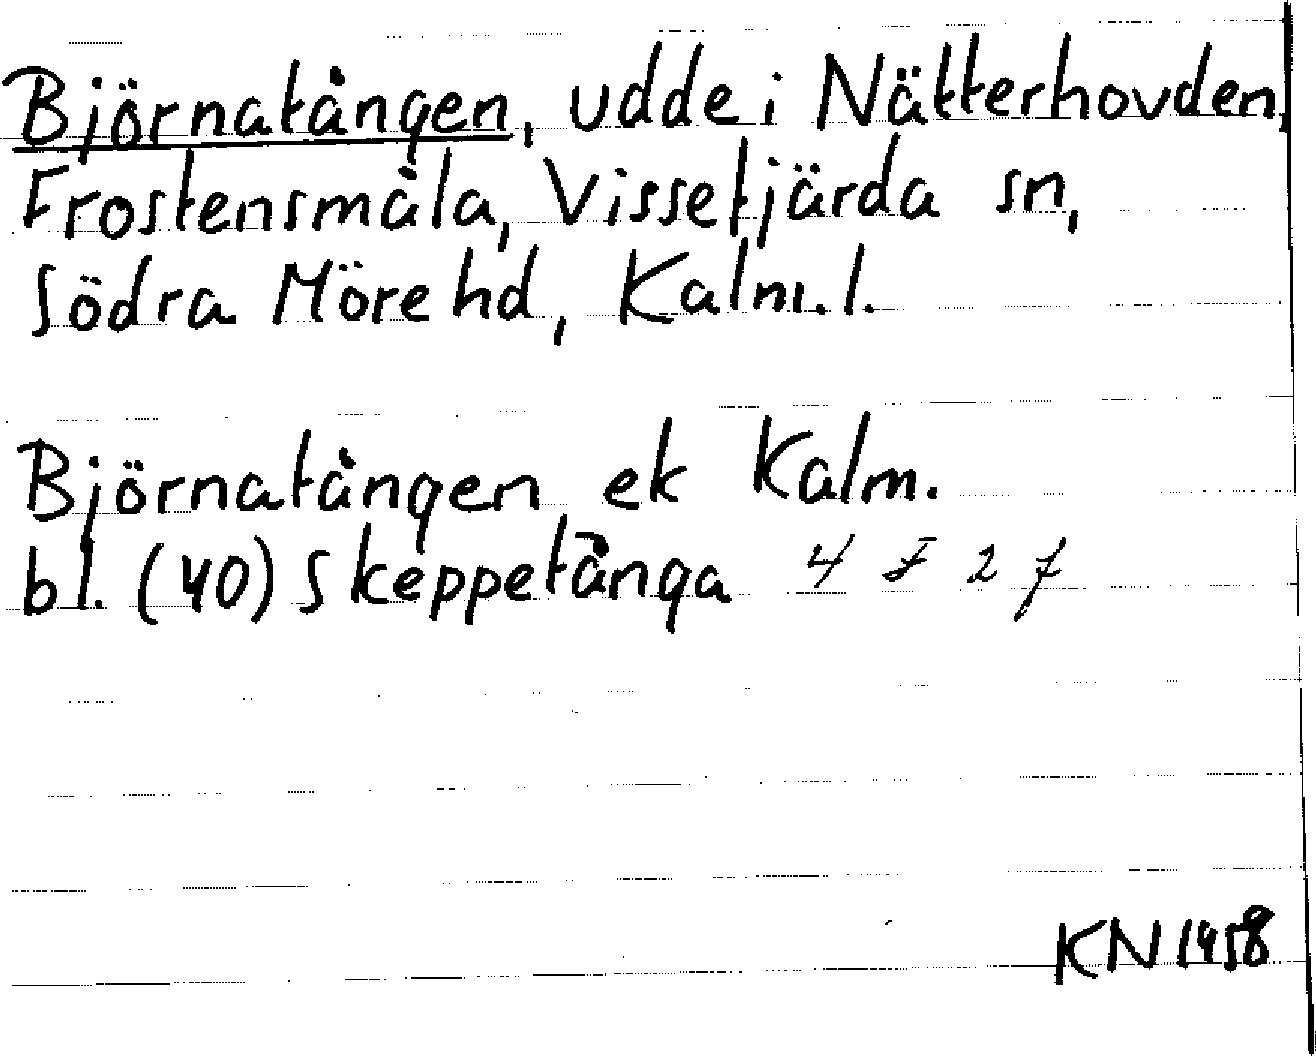 Björnatången, udde i Nätterhovden,
Frostensmåla, Vissefjärda sn,
Södra Möre hd, Kalm. l.
Björnatången ek Kalm.
bl. (40) Skeppetånga 4 F 2 f
KN 1958